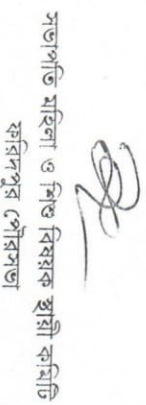 সভাপতি মহিলা ও শিশু বিষয়ক স্থায়ী কমিটি
ফরিদপুর পৌরসভা